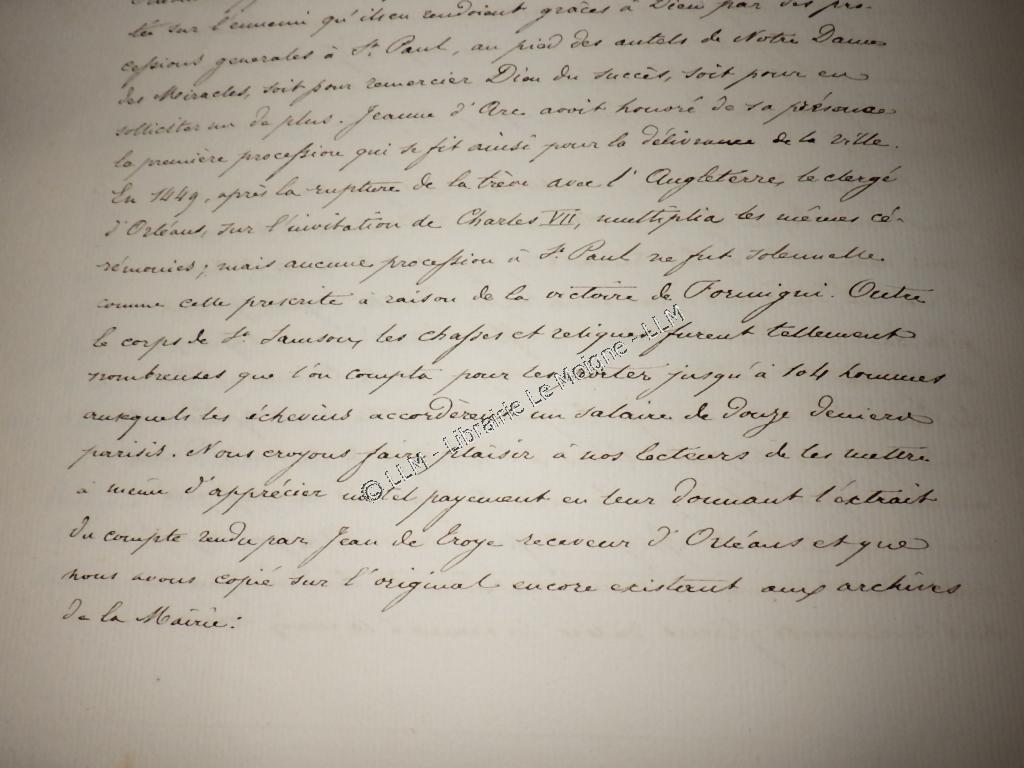 tés sur l'ennemi qu'ils en rendoient grâces à Dieu par des pro-
cessions generales à St. Paul, au pied des autels de Notre Dame
des Miracles, soit pour remercier Dieu du succès, soit pour en
solliciter un de plus. Jeanne d'Arc avoit honoré de sa présence
la première procession qui se fit ainsi pour la délivrance de la ville.
En 1449, après la rupture de la trève avec l'Angleterre, le clergé
d'Orléans, sur l'invitation de Charles VII, multiplia les mêmes cé-
rémonies; mais aucune procession à St. Paul ne fut solennelle
comme celle prescrite à raison de la victoire de Formigni. Outre
le corps de St. Samson, les chasses et reliques furent tellement
nombreuses que l'on compta pour les porter jusqu'à 104 hommes
auxquels les échevins accordèrent un salaire de douze deniers
parisis. Nous croyons faire plaisir à nos lecteurs de les mettre
à même d'apprécier un tel payement en leur donnant l'extrait
du compte rendu par Jean de Troye receveur d'Orléans et que
nous avons copié sur l'original encore existant aux archives
de la Mairie:
© LLM - Librairie Le Moigne - LLM